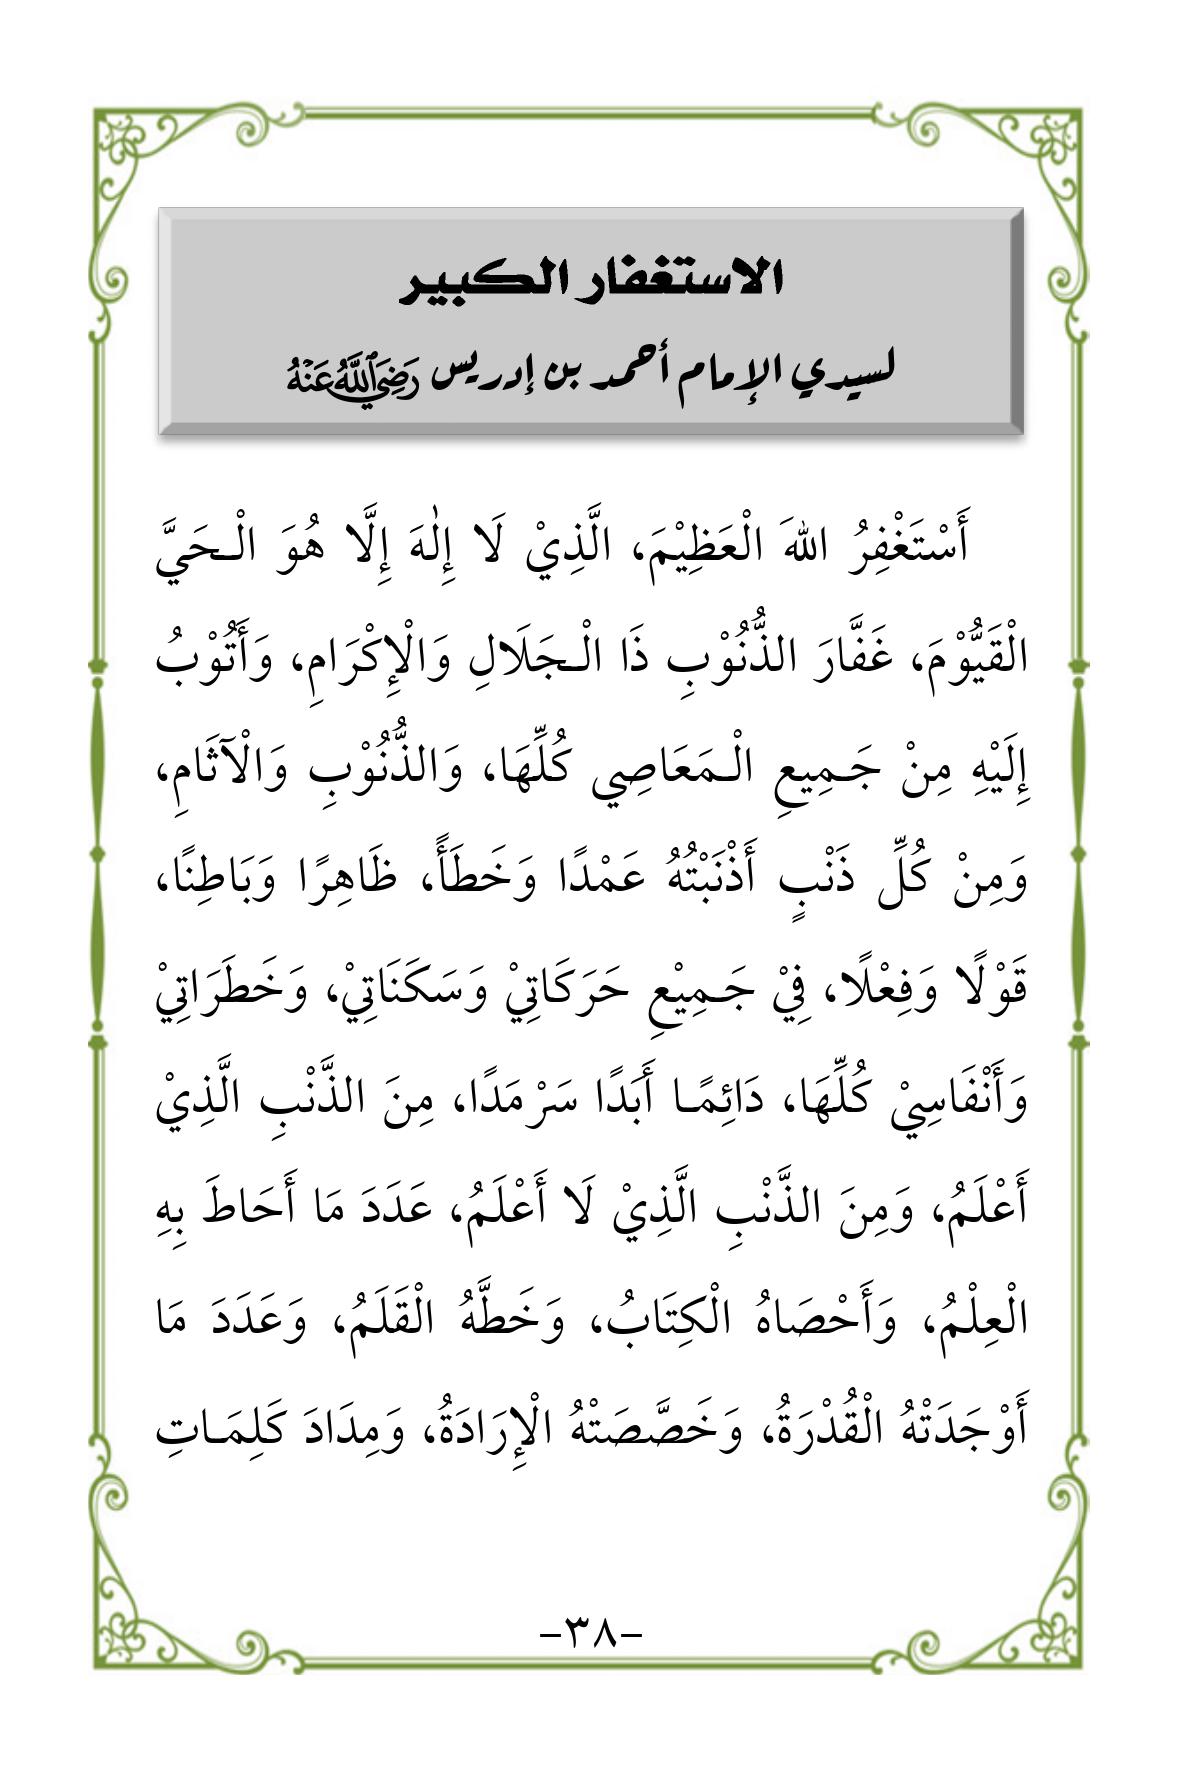 الاستغفار الكبير
لسيدي الإمام أحمد بن إدريس رَضِيَ ٱللَّهُ عَنْهُ
أَسْتَغْفِرُ اللهَ الْعَظِيْمَ، الَّذِيْ لَا إِلٰهَ إِلَّا هُوَ الْـحَيَّ
الْقَيُّوْمَ، غَفَّارَ الذُّنُوْبِ ذَا الْـجَلَالِ وَالْإِكْرَامِ، وَأَتُوْبُ
إِلَيْهِ مِنْ جَـمِيعِ الْـمَعَاصِي كُلِّهَا، وَالذُّنُوْبِ وَالْآثَامِ،
وَمِنْ كُلِّ ذَنْبٍ أَذْنَبْتُهُ عَمْدًا وَخَطَأً، ظَاهِرًا وَبَاطِنًا،
قَوْلًا وَفِعْلًا، فِيْ جَـمِيْعِ حَرَكَاتِيْ وَسَكَنَاتِيْ، وَخَطَرَاتِيْ
وَأَنْفَاسِيْ كُلِّهَا، دَائِمًـا أَبَدًا سَرْمَدًا، مِنَ الذَّنْبِ الَّذِيْ
أَعْلَمُ، وَمِنَ الذَّنْبِ الَّذِيْ لَا أَعْلَمُ، عَدَدَ مَا أَحَاطَ بِهِ
الْعِلْمُ، وَأَحْصَاهُ الْكِتَابُ، وَخَطَّهُ الْقَلَمُ، وَعَدَدَ مَا
أَوْجَدَتْهُ الْقُدْرَةُ، وَخَصَّصَتْهُ الْإِرَادَةُ، وَمِدَادَ كَلِمَـاتِ
-٣٨-